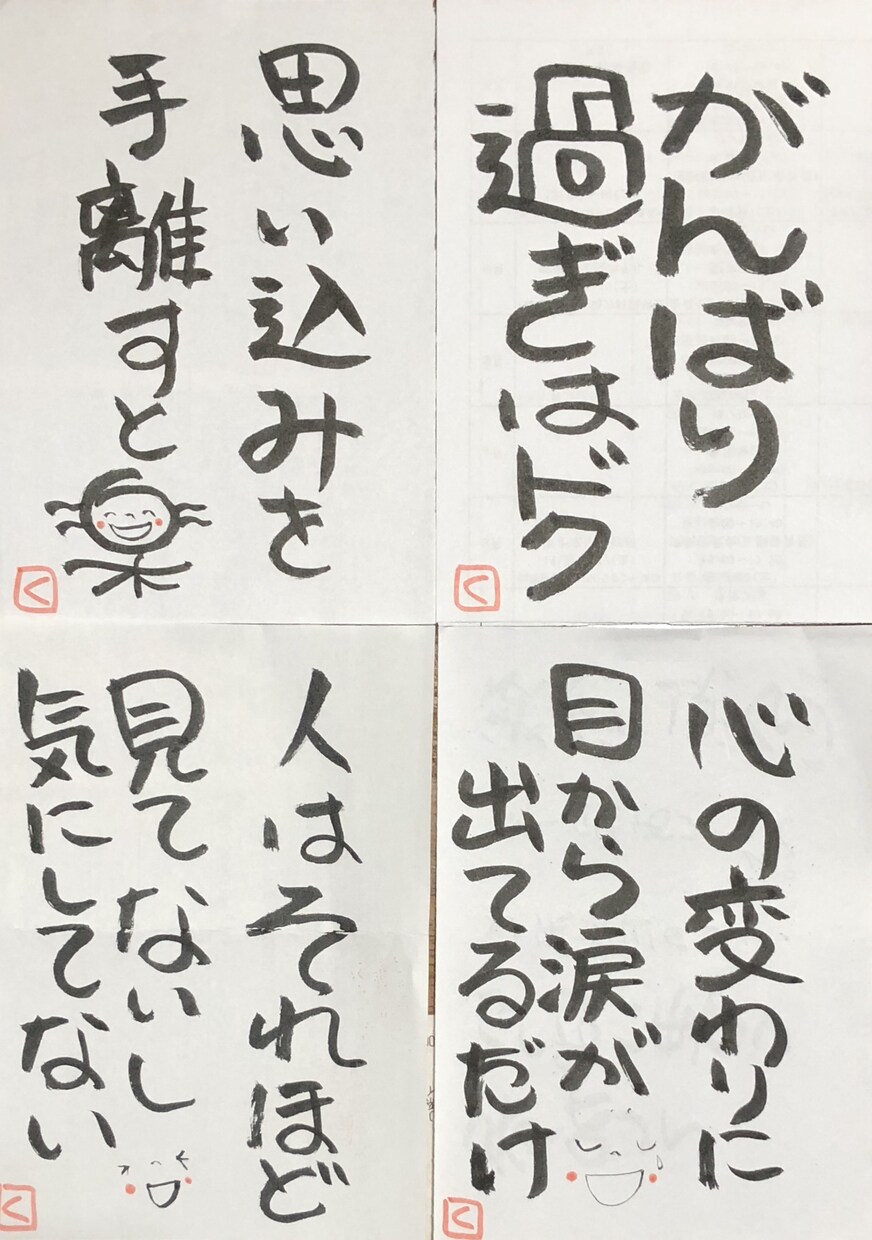 がんばり
過ぎはドク
く
思い込みを
手離すと
楽
く
心の変わりに
目から涙が
出てるだけ
く
人はそれほど
見てないし
気にしてない
く